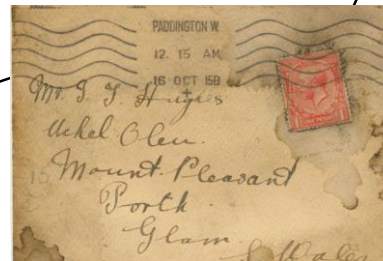 PADDINGTON W.
12. 15 AM
16 OCT 15B
Mr. J. Hughes
Uchel Olen.
Mount Pleasant
Porth
Glam.
S. Wales
ONE PENNY